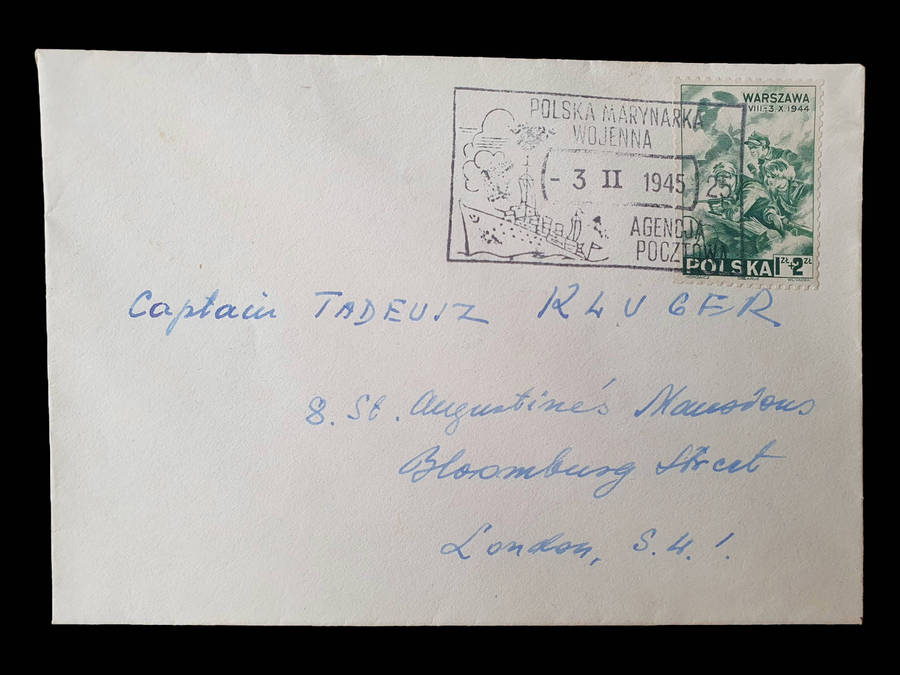 POLSKA MARYNARKA
WOJENNA
- 3 II 1945 25
AGENCJA
POCZTOWA
WARSZAWA
VIII-3 X 1944
POLSKA 1 ZŁ+2 ZŁ
Captain TADEUSZ KLUGER
8. St. Augustine's Mansions
Bloomburg Street
London, S.W.1.